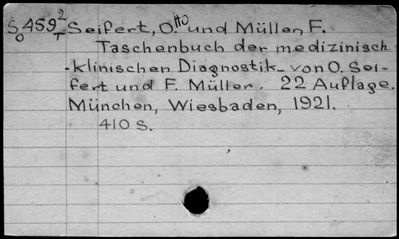 S0459 2/T Seifert, Otto und Müller, F.
Taschenbuch der medizinisch
-klinischen Diagnostik von O. Sei-
fert und F. Müller. 22 Auflage.
München, Wiesbaden, 1921.
410 S.